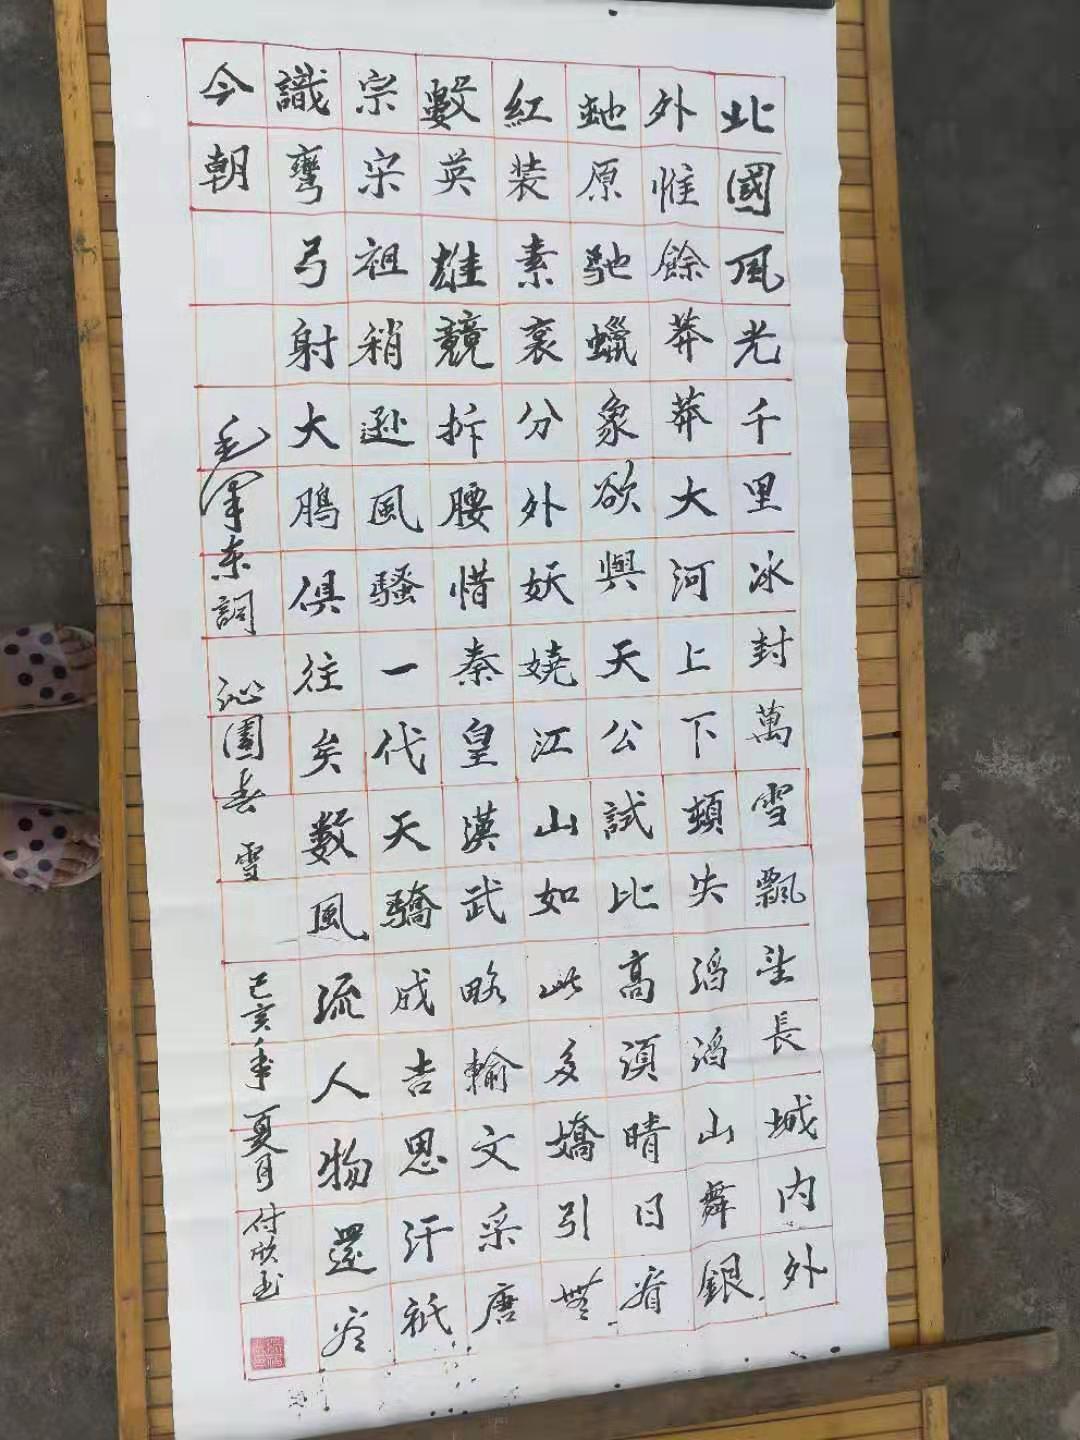 北國風光千里冰封萬雪飄望長城内外
外惟餘莽莽大河上下頓失滔滔山舞銀
虵原馳蠟象欲與天公試比高須晴日看
紅装素裹分外妖嬈江山如此多嬌引無
數英雄競拆腰惜秦皇漢武略輸文采唐
宗宋祖稍遜風騷一代天驕成吉思汗祇
識彎弓射大鵰俱往矣數風流人物還看
今朝
毛澤東詞 沁園春 雪 己亥年夏月 付欣玉